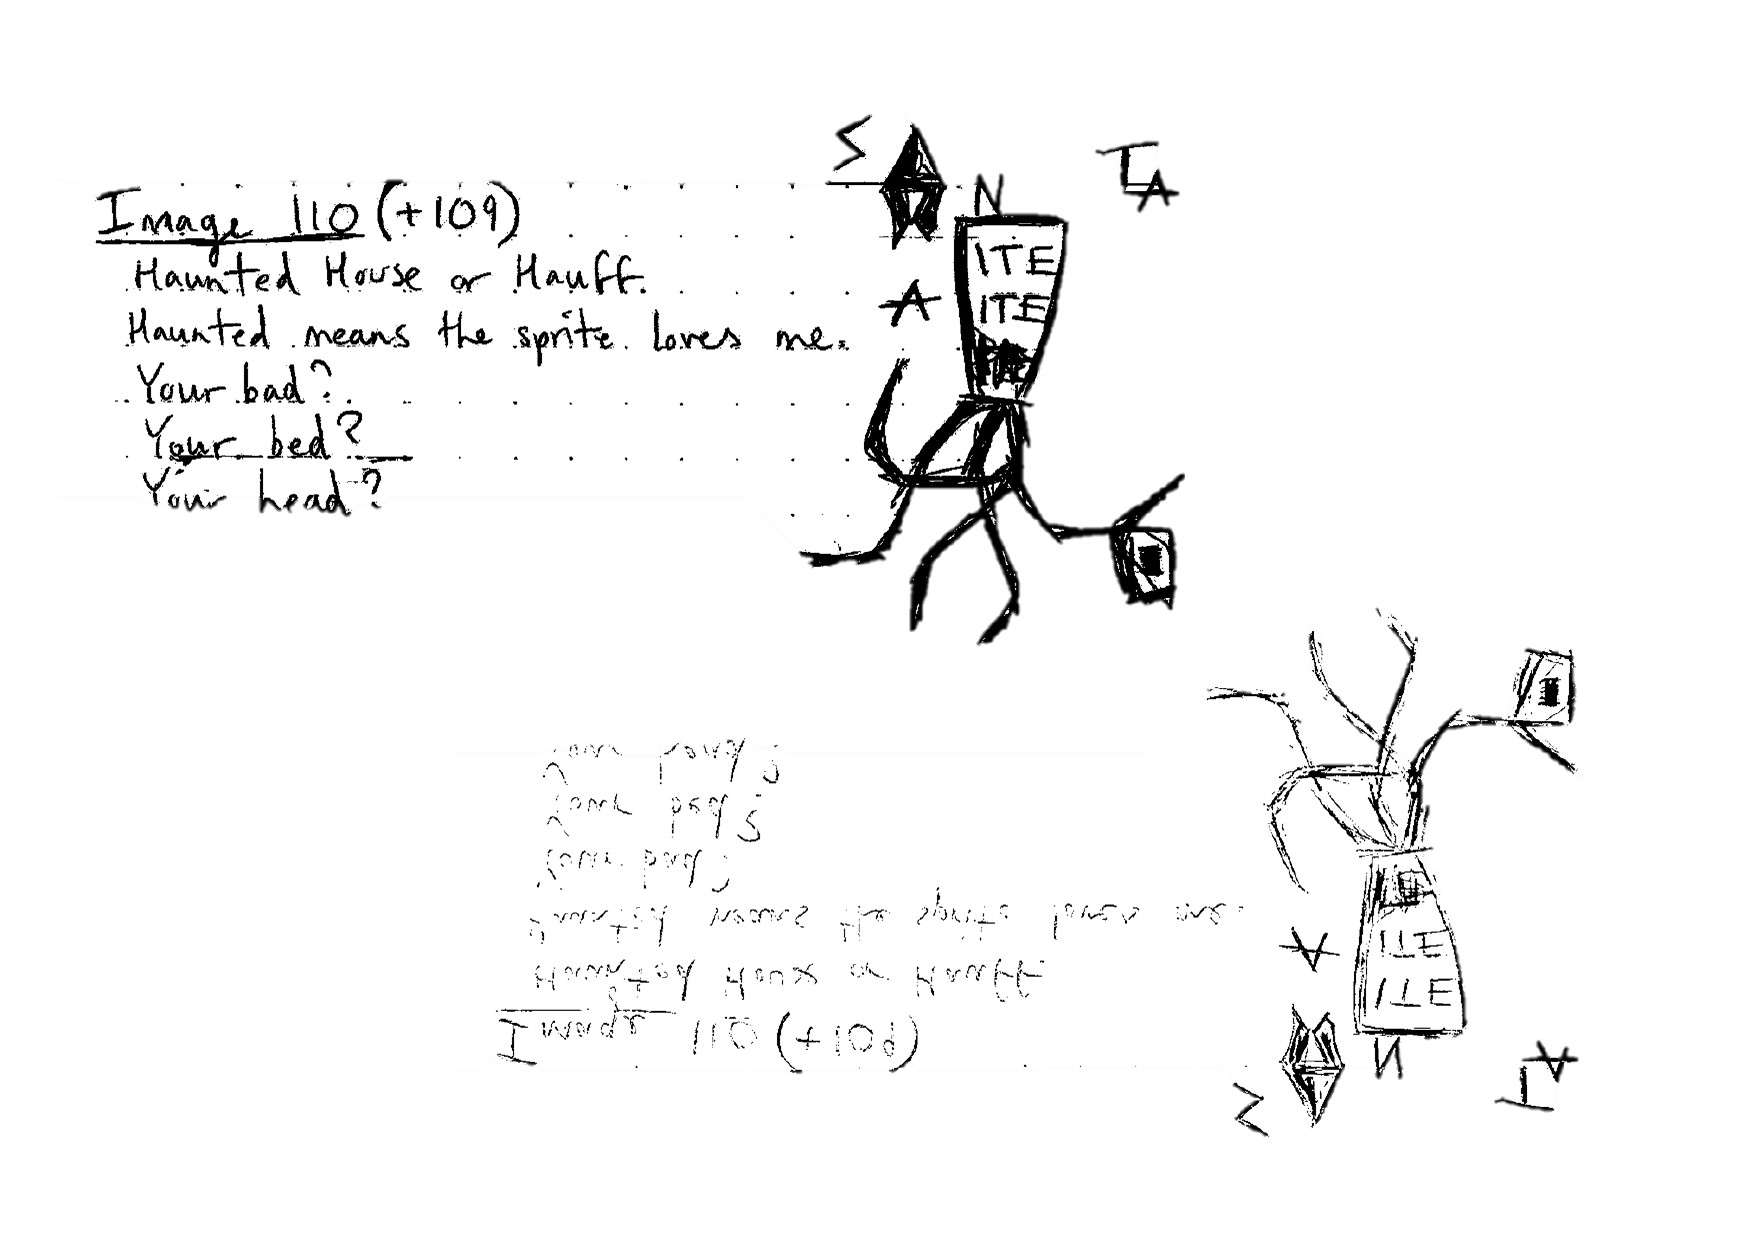 Image 110 (+109)
Haunted House or Hauff.
Haunted means the sprite loves me.
Your bad?
Your bed?
Your head?
S
N
TA
A
ITE
ITE
Your head?
Your bed?
Your bad?
Haunted means the sprite loves me.
Haunted House or Hauff.
Image 110 (+109)
A
ITE
ITE
N
S
TA